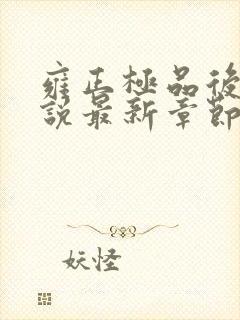 雍正極品後
說最新章節
妖怪